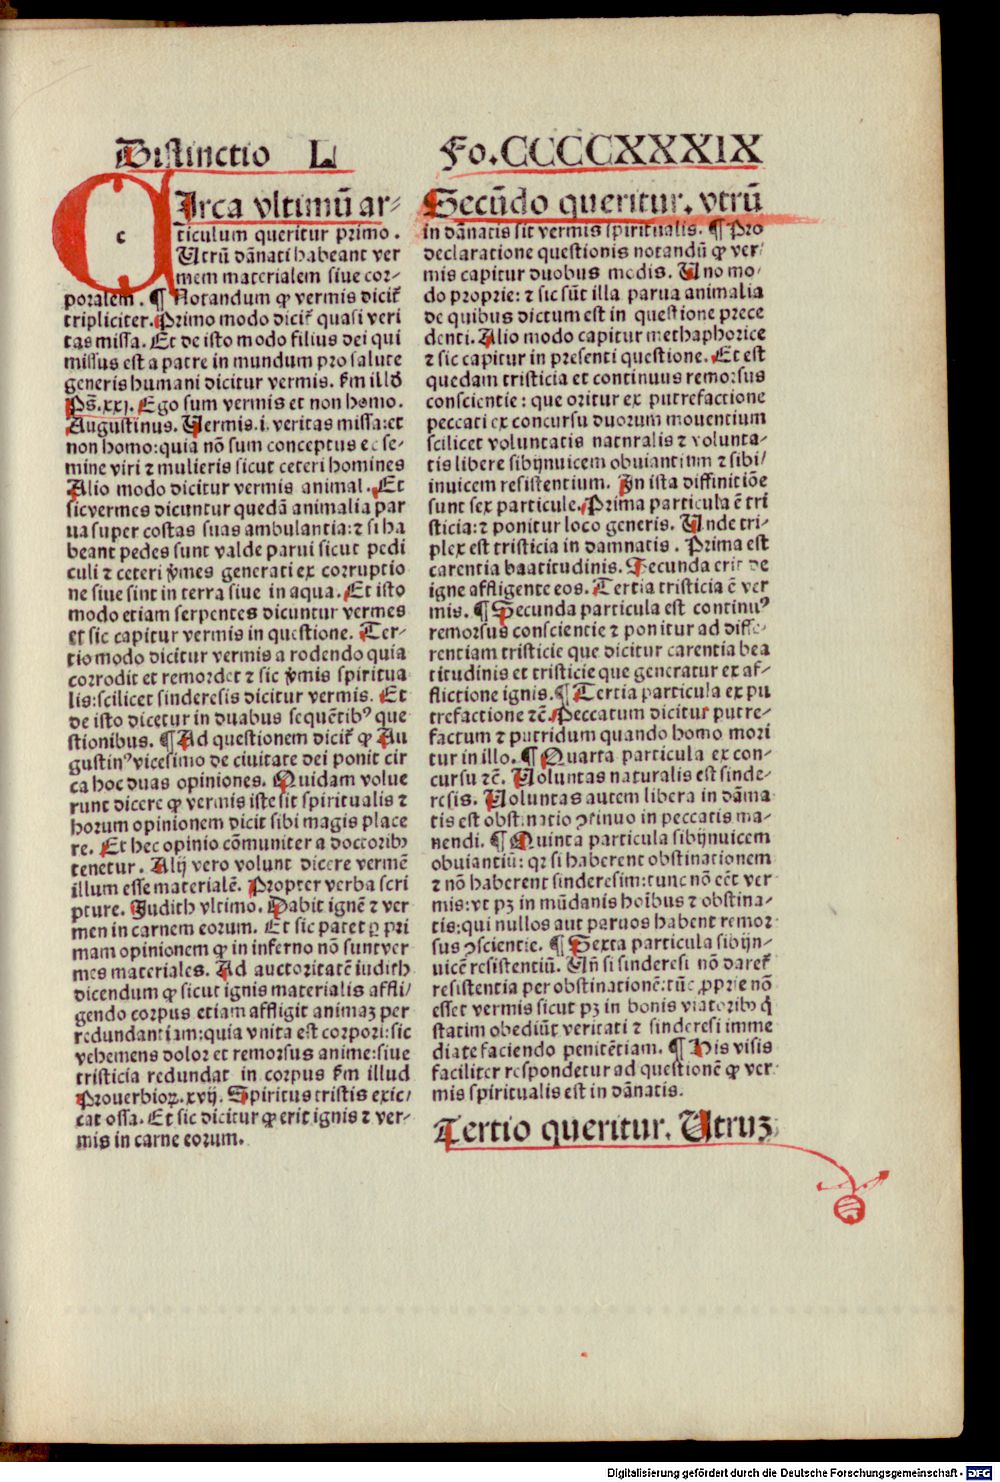 Distinctio L
Fo.CCCCCXXXIX
CIrca vltimū ar-
ticulum queritur primo.
Utrū dānati habeant ver
mem materialem siue cor-
poralem. ¶ Notandum ꝙ vermis dicit᷑
tripliciter. Primo modo dicit᷑ quasi veri
tas missa. Et de isto modo filius dei qui
missus est a patre in mundum pro salute
generis humani dicitur vermis. ẜm illđ
Ps̄.xxj. Ego sum vermis et non homo.
Augustinus. Uermis.i.veritas missa:et
non homo:quia nō sum conceptus ec se-
mine viri ⁊ mulieris sicut ceteri homines
Alio modo dicitur vermis animal. Et
sic vermes dicuntur quedā animalia par
ua super costas suas ambulantia:⁊ si ha
beant pedes sunt valde parui sicut pedi
culi ⁊ ceteri v̓mes generati ex corruptio
ne siue sint in terra siue in aqua. Et isto
modo etiam serpentes dicuntur vermes
et sic capitur vermis in questione. Ter-
tio modo dicitur vermis a rodendo quia
corrodit et remordet ⁊ sic v̓mis spiritua
lis:scilicet sinderesis dicitur vermis. Et
de isto dicetur in duabus sequētibꝰ que
stionibus. ¶ Ad questionem dicit᷑ ꝙ Au
gustinꝰ vicesimo de ciuitate dei ponit cir
ca hoc duas opiniones. Quidam volue
runt dicere ꝙ vermis iste sit spiritualis ⁊
horum opinionem dicit sibi magis place
re. Et hec opinio cōmuniter a doctoribꝰ
tenetur. Alij vero volunt dicere vermē
illum esse materialē. Propter verba scri
pture. Judith vltimo. Dabit ignē ⁊ ver
men in carnem eorum. Et sic patet ꝑ pri
mam opinionem ꝙ in inferno nō sunt ver
mes materiales. Ad auctoritatē iudith
dicendum ꝙ sicut ignis materialis affli/
gendo corpus etiam affligit animaꝫ per
redundantiam:quia vnita est corpori:sic
vehemens dolor et remorsus anime:siue
tristicia redundat in corpus ẜm illud
Prouerbioꝝ.xvij. Spiritus tristis exic/
cat ossa. Et sic dicitur ꝙ erit ignis ⁊ ver-
mis in carne eorum.
Secūdo queritur. vtrū
in dānatis sit vermis spiritualis. ¶ Pro
declaratione questionis notandū ꝙ ver/
mis capitur duobus modis. Uno mo/
do proprie: ⁊ sic sūt illa parua animalia
de quibus dictum est in questione prece
denti. Alio modo capitur methaphorice
⁊ sic capitur in presenti questione. Et est
quedam tristicia et continuus remorsus
conscientie: que oritur ex putrefactione
peccati ex concursu duorum mouentium
scilicet voluntatis naturalis ⁊ volunta-
tis libere sibijnuicem obuiantium ⁊ sibi/
inuicem resistentium. In ista diffinitiōe
sunt sex particule. Prima particula ē tri
sticia:⁊ ponitur loco generis. Unde tri-
plex est tristicia in damnatis. Prima est
carentia beatitudinis. Secunda erit de
igne affligente eos. Tertia tristicia ē ver
mis. ¶ Secunda particula est continuꝰ
remorsus conscientie ⁊ ponitur ad diffe-
rentiam tristicie que dicitur carentia bea
titudinis et tristicie que generatur ex af-
flictione ignis. ¶ Tertia particula ex pu
trefactione ⁊c̄. Peccatum dicitur putre-
factum ⁊ putridum quando homo mori
tur in illo. ¶ Quarta particula ex con-
cursu ⁊c̄. Uoluntas naturalis est sinde-
resis. Uoluntas autem libera in dāma-
tis est obstinatio ꝯtinuo in peccatis ma-
nendi. ¶ Quinta particula sibijnuicem
obuiantiū: qꝛ si haberent obstinationem
⁊ nō haberent sinderesim:tunc nō eēt ver
mis:vt pꝫ in mūdanis hoībus ⁊ obstina-
tis:qui nullos aut paruos habent remor
sus ꝯscientie. ¶ Sexta particula sibijn-
uicē resistentiū. Uñ si sinderesi nō daret᷑
resistentia per obstinationē:tūc ꝓprie nō
esset vermis sicut pꝫ in bonis viatoribꝰ q̇
statim obediūt veritati ⁊ sinderesi imme
diate faciendo penitētiam. ¶ His visis
faciliter respondetur ad questionē ꝙ ver
mis spiritualis est in dānatis.
Tertio queritur. Utruꝫ
Digitalisierung gefördert durch die Deutsche Forschungsgemeinschaft - DFG